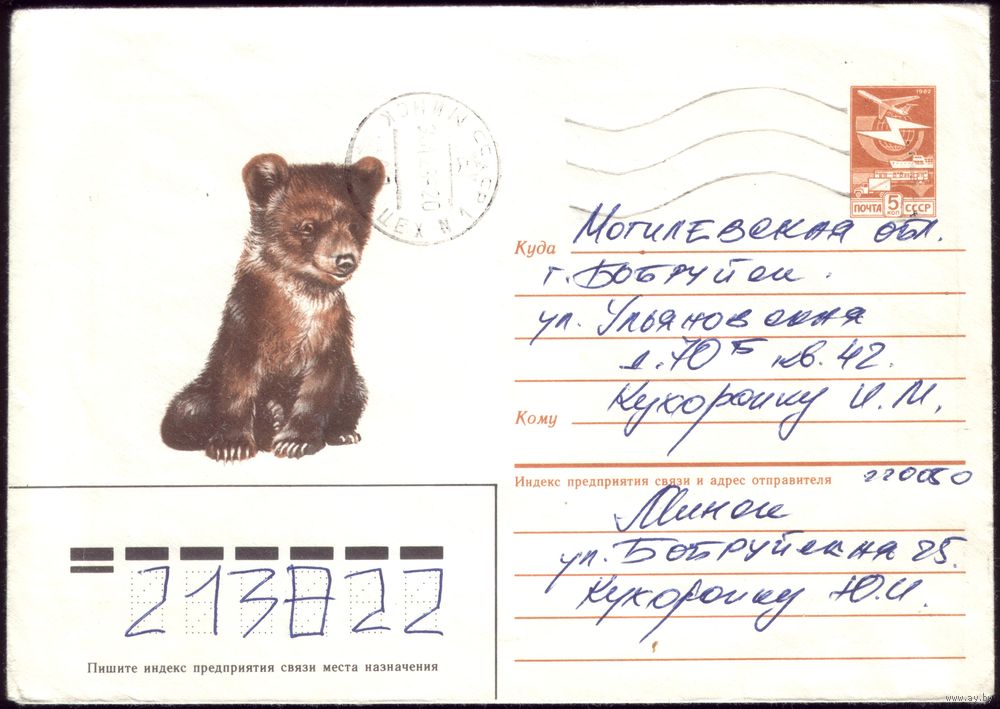 МИНСК
ЦЕХ N 1
1982
ПОЧТА 5 КОП СССР
Куда Могилевская обл.
г. Бобруйск.
ул. Ульяновская
д. 70Б кв. 42.
Кому И. М.
Индекс предприятия связи и адрес отправителя 220050
Минск
ул. Бобруйская 25.
Ю. И.
213822
Пишите индекс предприятия связи места назначения
www.ay.by